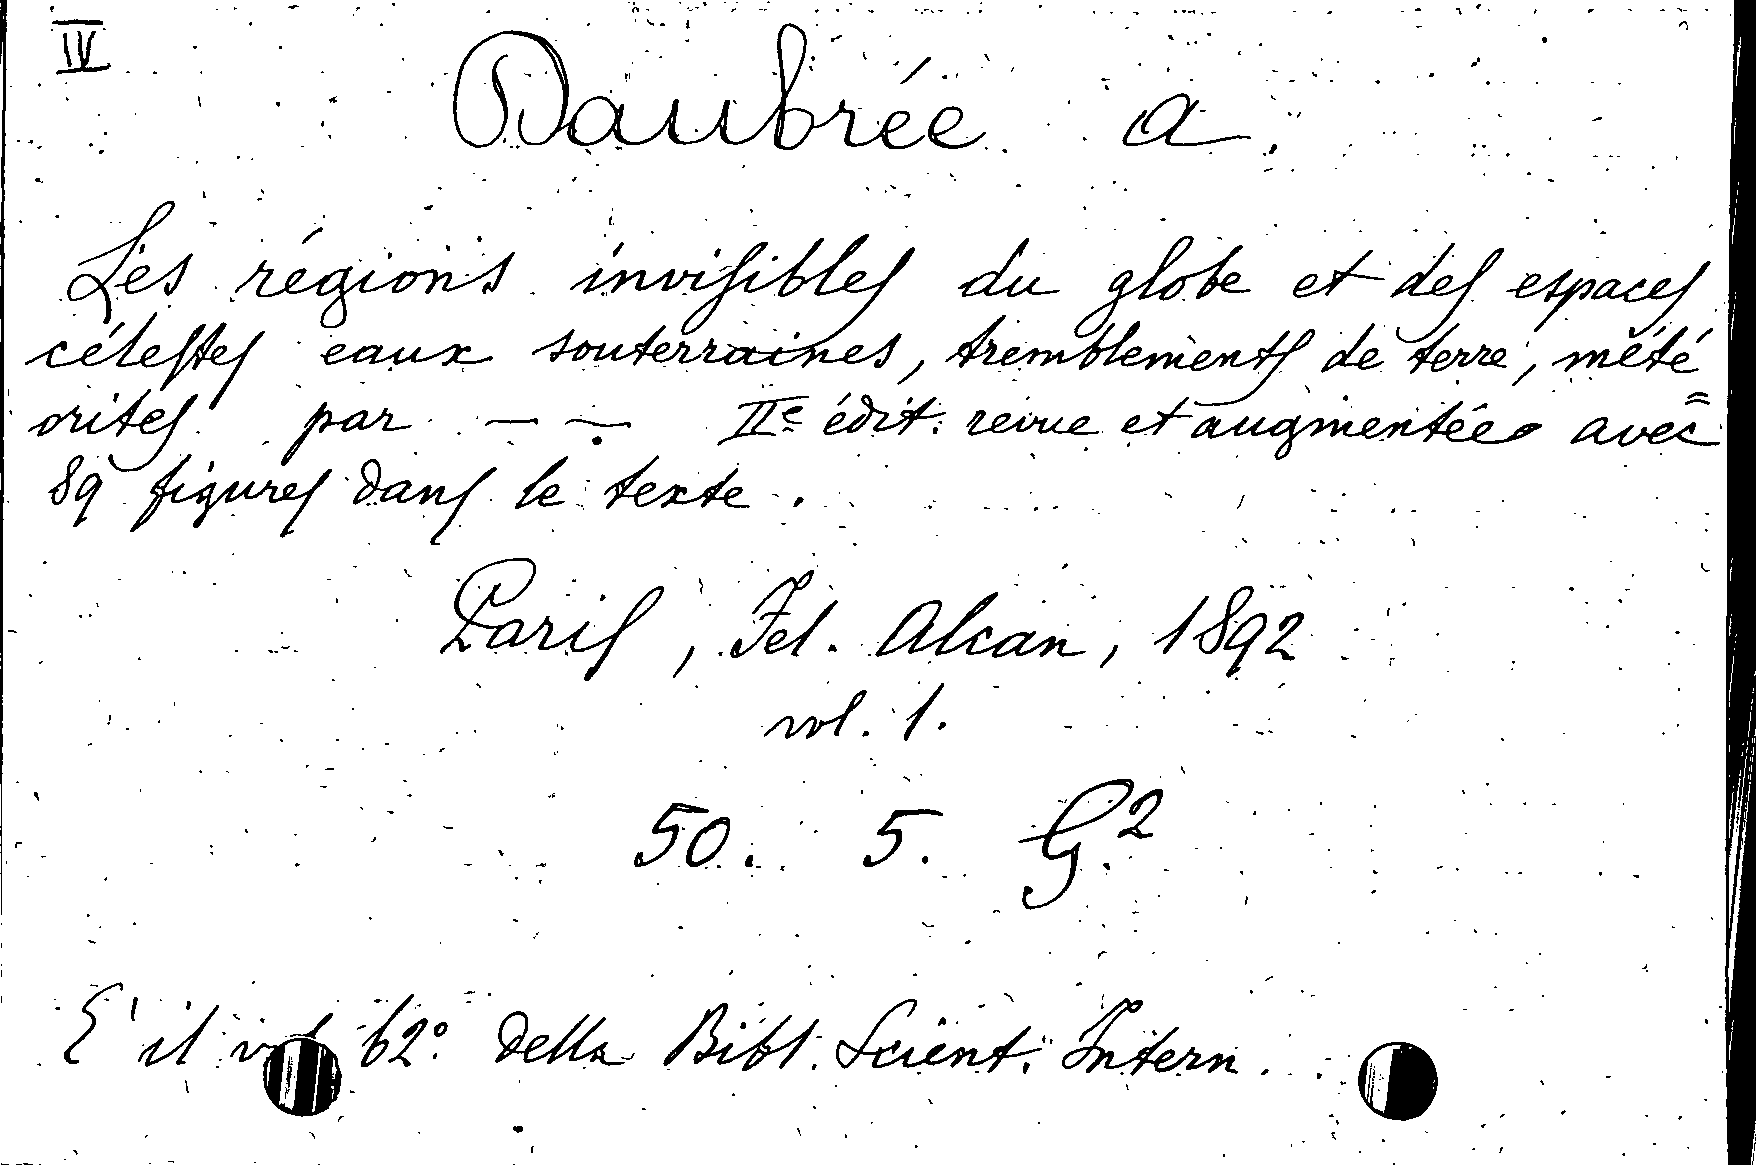 IV
Daubrée A.
Les régions invisibles du globe et des espaces
célestes eaux souterraines, tremblements de terre, mété
orites par — —. IIe édit. revue et augmentée avec
89 figures dans le texte.
Paris, Fel. Alcan, 1892
vol. 1.
50. 5. G.2
E' il 62° della Bibl. Scient. Intern.